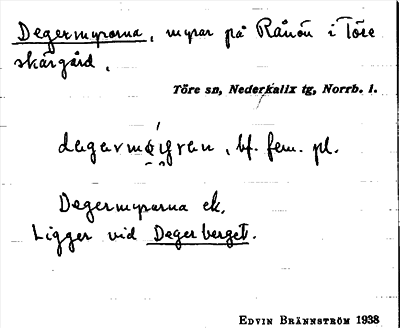 Degermyrorna, myrar på Rånön i Töre
skärgård.
Töre sn, Nederkalix tg, Norrb. l.
bf. fem. pl.
Degermyrarna ek.
Ligger vid Degerberget.
EDVIN BRÄNNSTRÖM 1938